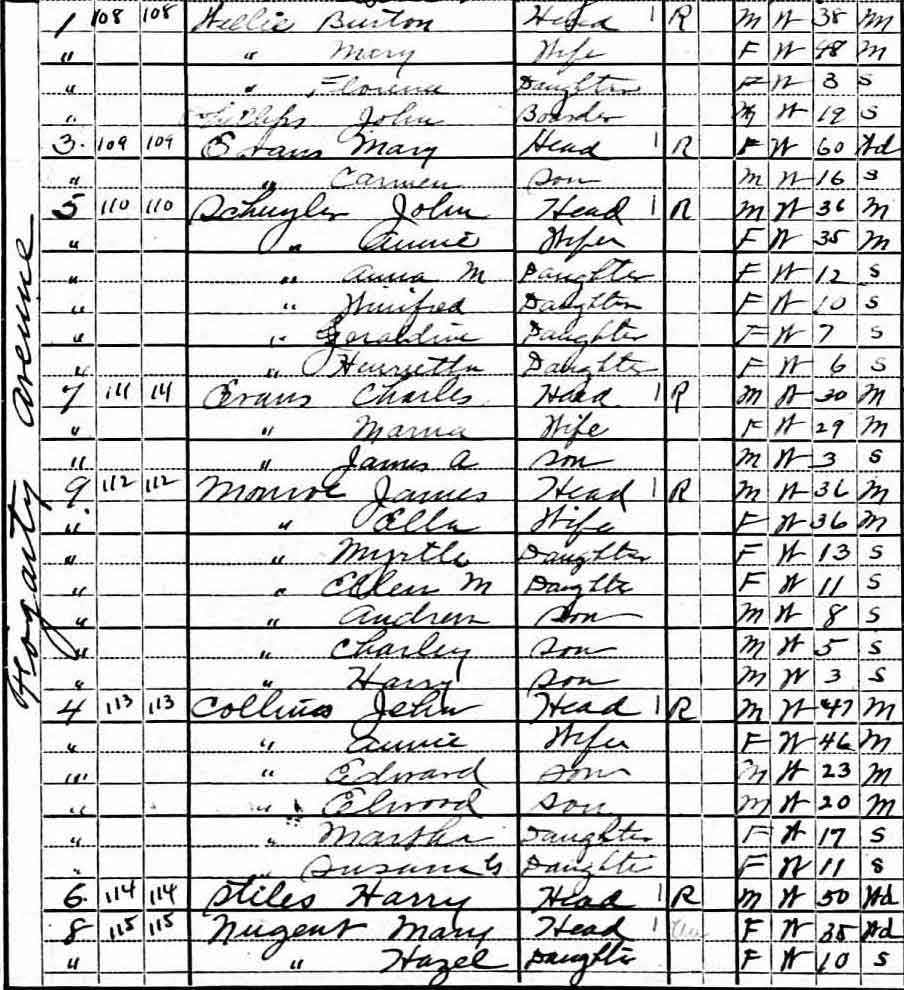 Hogarty Avenue
1 108 108 Hellie Burton Head 1 R M W 38 M
" " Mary Wife F W 48 M
" " Florena Daughter F W 3 S
" Phillips John Boarder M W 19 S
3 109 109 Evans Mary Head 1 R F W 60 Wd
" " Carmen Son M W 16 S
5 110 110 Schuyler John Head 1 R M W 36 M
" " Annie Wife F W 35 M
" " Anna M Daughter F W 12 S
" " Winifred Daughter F W 10 S
" " Geraldine Daughter F W 7 S
" " Henrietta Daughter F W 6 S
7 111 111 Evans Charles Head 1 R M W 30 M
" " Mama Wife F W 29 M
" " James A Son M W 3 S
9 112 112 Monroe James Head 1 R M W 36 M
" " Ella Wife F W 36 M
" " Myrtle Daughter F W 13 S
" " Ellen M Daughter F W 11 S
" " Andrew Son M W 8 S
" " Charley Son M W 5 S
" " Harry Son M W 3 S
4 113 113 Collins John Head 1 R M W 47 M
" " Annie Wife F W 46 M
" " Edward Son M W 23 M
" " Elwood Son M W 20 M
" " Martha Daughter F W 17 S
" " Susan G Daughter F W 11 S
6 114 114 Stiles Harry Head 1 R M W 50 Wd
8 115 115 Nugent Mary Head 1 F W 35 Wd
" " Hazel Daughter F W 10 S